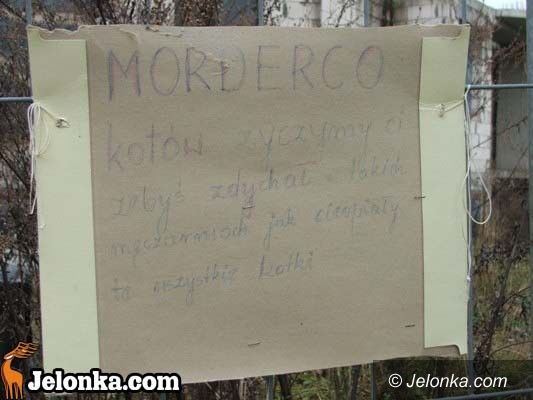 MORDERCO
kotów życzymy ci
żebyś zdychał w takich
męczarniach jak cierpiały
te wszystkie kotki
Jelonka.com
© Jelonka.com